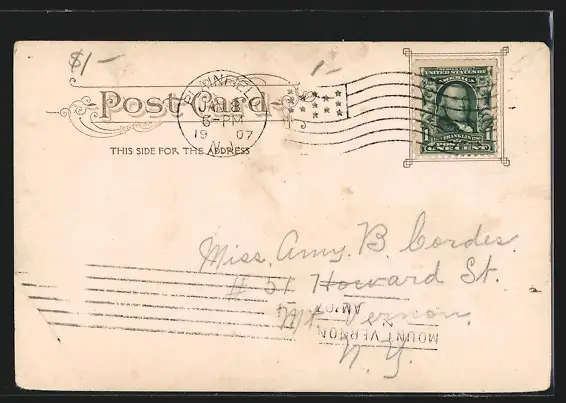 $1- 1-
Post Card
PLAINFIELD
6-PM
19 07
N.J.
THIS SIDE FOR THE ADDRESS
SERIES 1902
UNITED STATES OF AMERICA
FRANKLIN
1 POSTAGE 1
ONE CENT
Miss. Amy. B. Cordes.
# 51 Howard St.
Mt. Vernon.
N. Y.
MOUNT VERNON